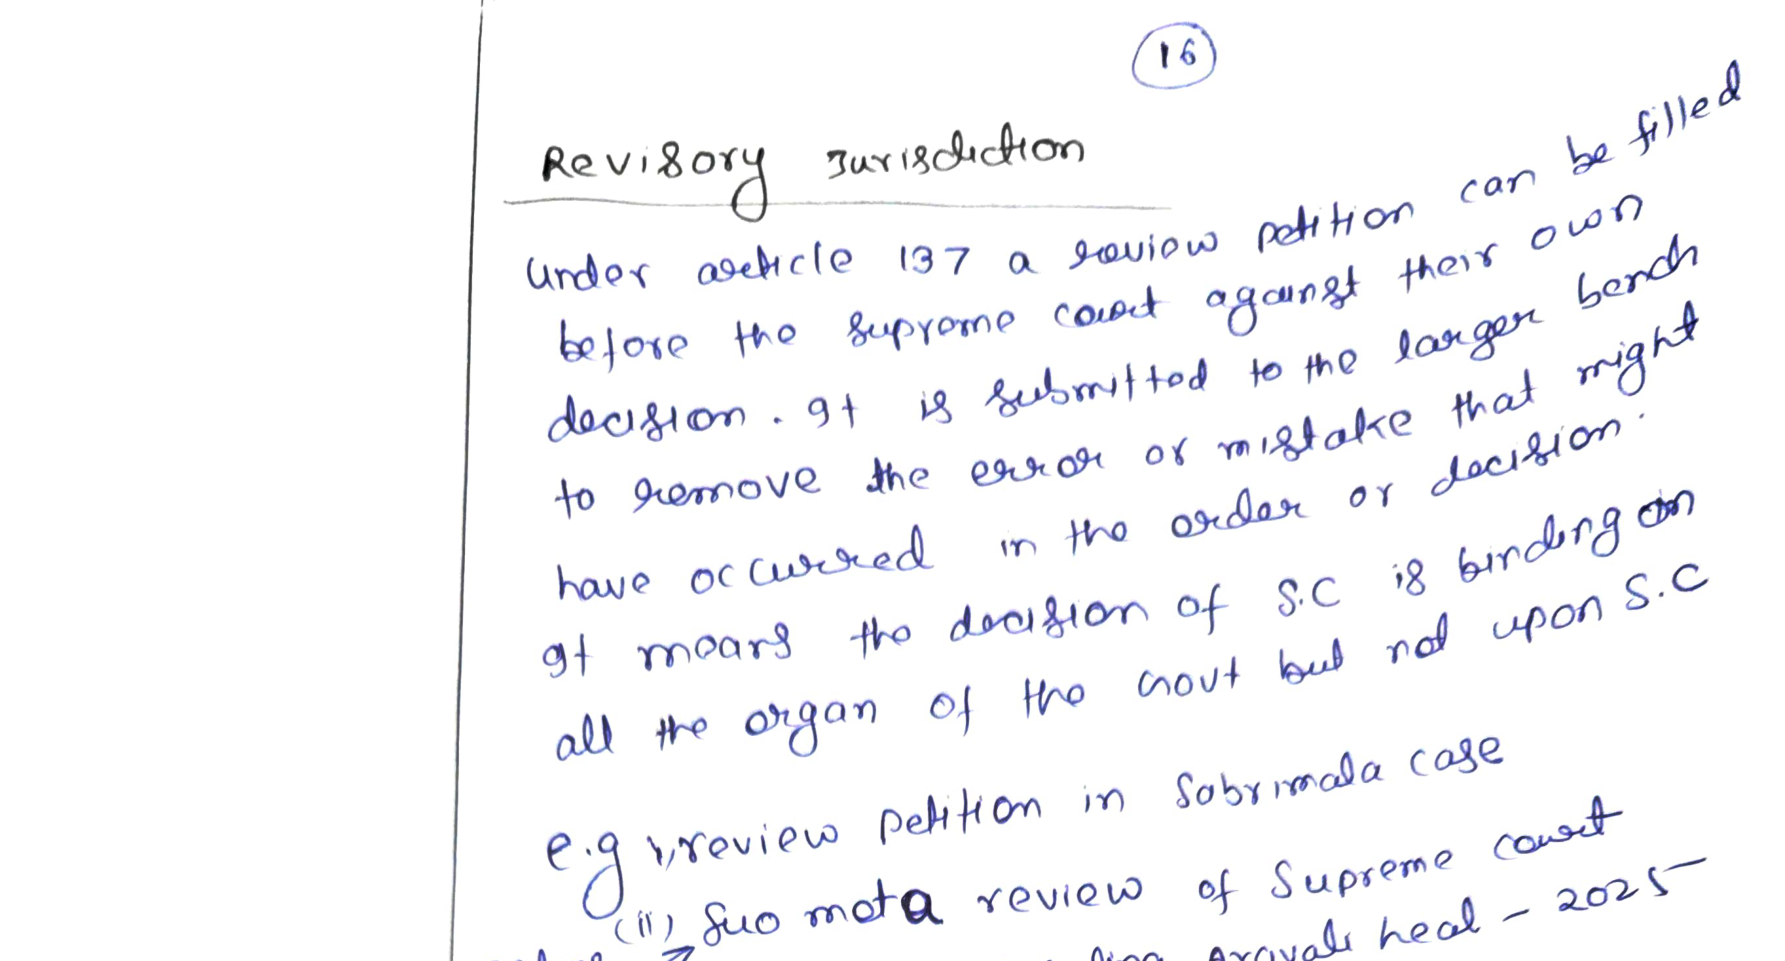 16
Revisory Jurisdiction
Under article 137 a review petition can be filled
before the supreme court against their own
decision. It is submitted to the larger bench
to remove the error or mistake that might
have occurred in the order or decision.
It means the decision of S.C is binding on
all the organ of the Govt but not upon S.C
e.g i, review petition in Sabrimala case
(ii) Suo mota review of Supreme court
Aravali heal - 2025